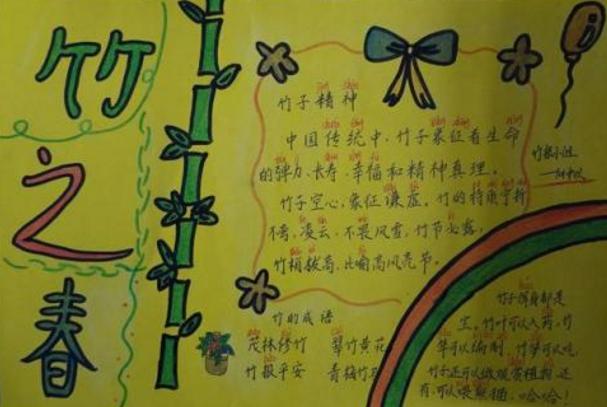 竹之春
竹子精神
中国传统中，竹子象征着生命
的弹力、长寿、幸福和精神真理。
竹子空心，象征谦虚。竹的特质弯折
不离，凌云，不畏风雪，竹节必露，
竹梢拔高，比喻高风亮节。
竹的成语
茂林修竹 翠竹黄花
竹报平安 青梅竹马
竹子浑身都是
宝，竹叶可以入药，竹
竿可以编制，竹笋可以吃，
竹子还可以做观赏植物，还
有，可以喂熊猫，哈哈！